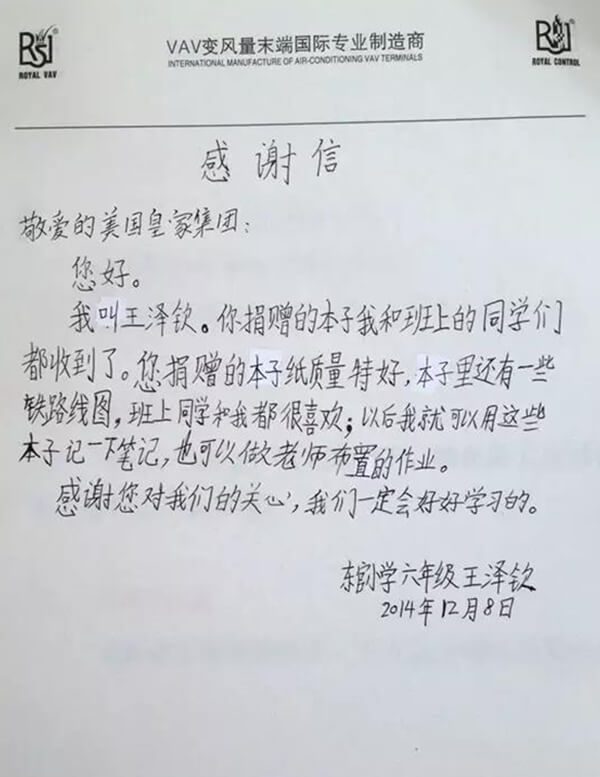 RSI
ROYAL VAV
VAV变风量末端国际专业制造商
INTERNATIONAL MANUFACTURE OF AIR-CONDITIONING VAV TERMINALS
ROYAL CONTROL
感谢信
敬爱的美国皇家集团:
您好。
我叫王泽钦。你捐赠的本子我和班上的同学们
都收到了。您捐赠的本子纸质量特好,本子里还有一些
铁路线图,班上同学和我都很喜欢;以后我就可以用这些
本子记一下笔记,也可以做老师布置的作业。
感谢您对我们的关心,我们一定会好好学习的。
东官小学六年级王泽钦
2014年12月8日